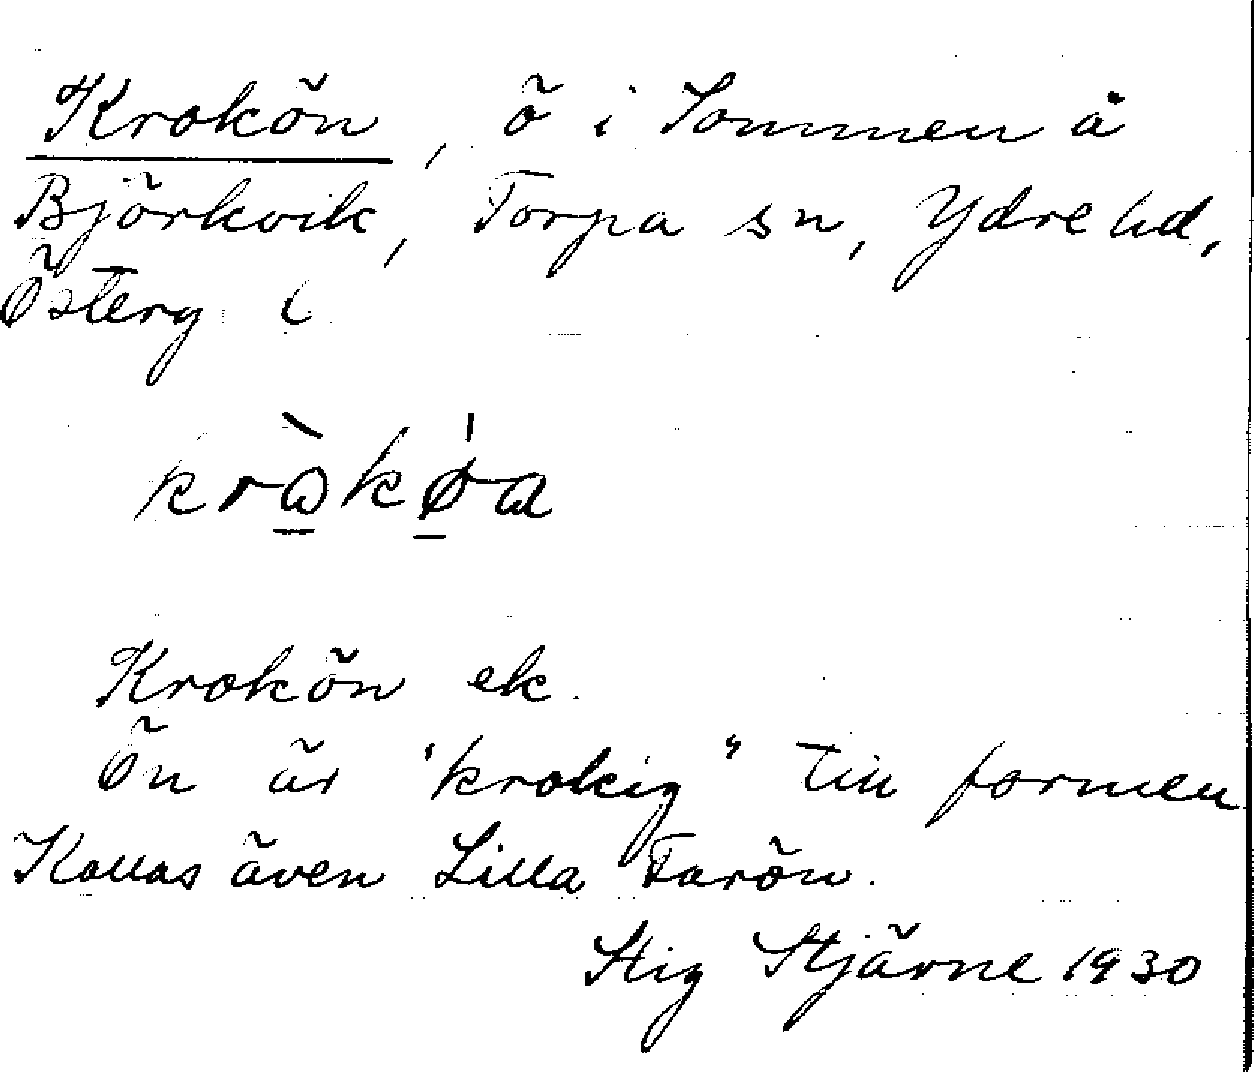 Krokön, ö i Sommen å
Björkvik, Torpa sn, Ydre hd,
Österg. l.
kràkø̀a
Krokön ek.
Ön är "krokig" till formen
Kallas även Lilla Tarön.
Stig Stjärne 1930